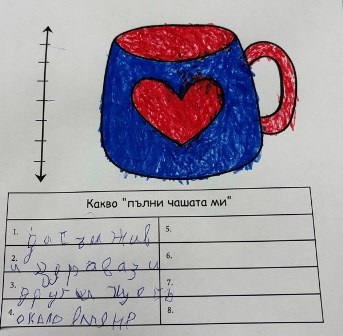 Какво "пълни чашата ми"
1. да съм жив
2. и здрава и
3. други хора
4. около
5.
6.
7.
8.